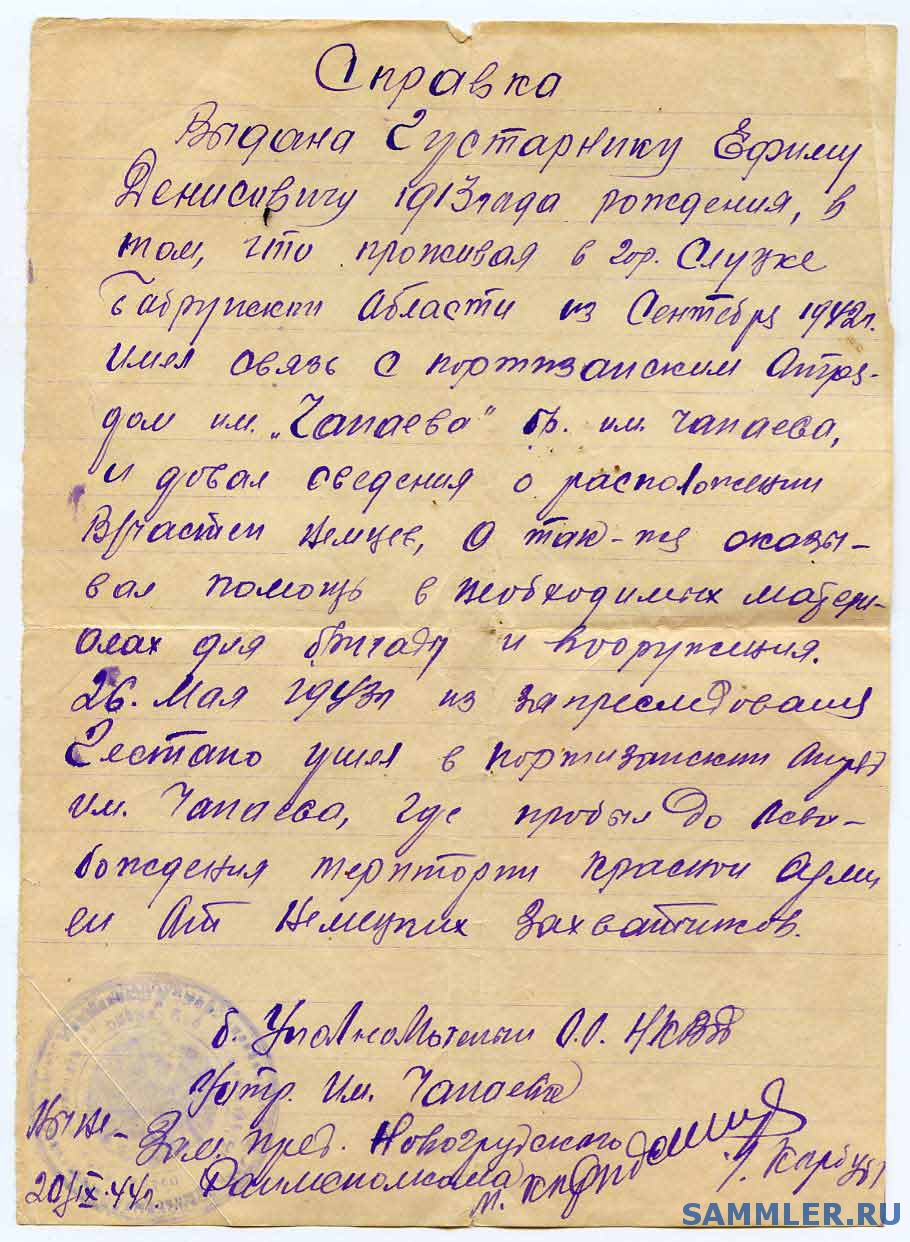 Справка
Выдана Густарнику Ефиму
Денисовичу 1913 года рождения, в
том, что проживая в гор. Слуцке
Бабруйской Области из Сентября 1942г.
имел связь с портизанским Отря-
дом им. „Чапаева" бр. им. Чапаева,
и довал сведения о расположении
частей немцев, О так-же оказы-
вал помощь в необходимых матери-
олах для бригады и вооружения.
26. Мая 1943г из за преследования
Гестапо ушел в портизанский Отряд
им. Чапаева, где пробыл до Осво-
бождения територии красной Арми
ей От Немецких Захватчиков.
б. Уполномоченый О.О. НКВД
отр. Им. Чапаева
Ныне - Зам. пред. Новогрудского
20/IX.44г. Райисполкома
SAMMLER.RU